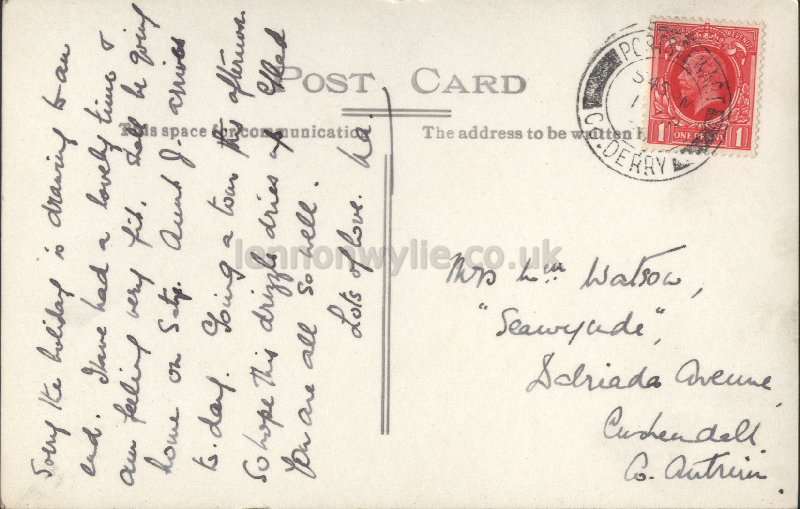 POST CARD
This space for communication
The address to be written
Sorry the holiday is drawing to an
end. Have had a lovely time &
am feeling very fit. Shall be going
home on Satdy. Aunt J. arrives
to.day. Going a tour this afternoon
So hope this drizzle dries up. Glad
you are all so well.
Lots of love.
Mrs Wm Watson,
"Seawynde",
Dalriada Avenue,
Cushendall
Co. Antrim.
CO. DERRY
REVENUE
1 ONE PENNY 1
lennonwylie.co.uk